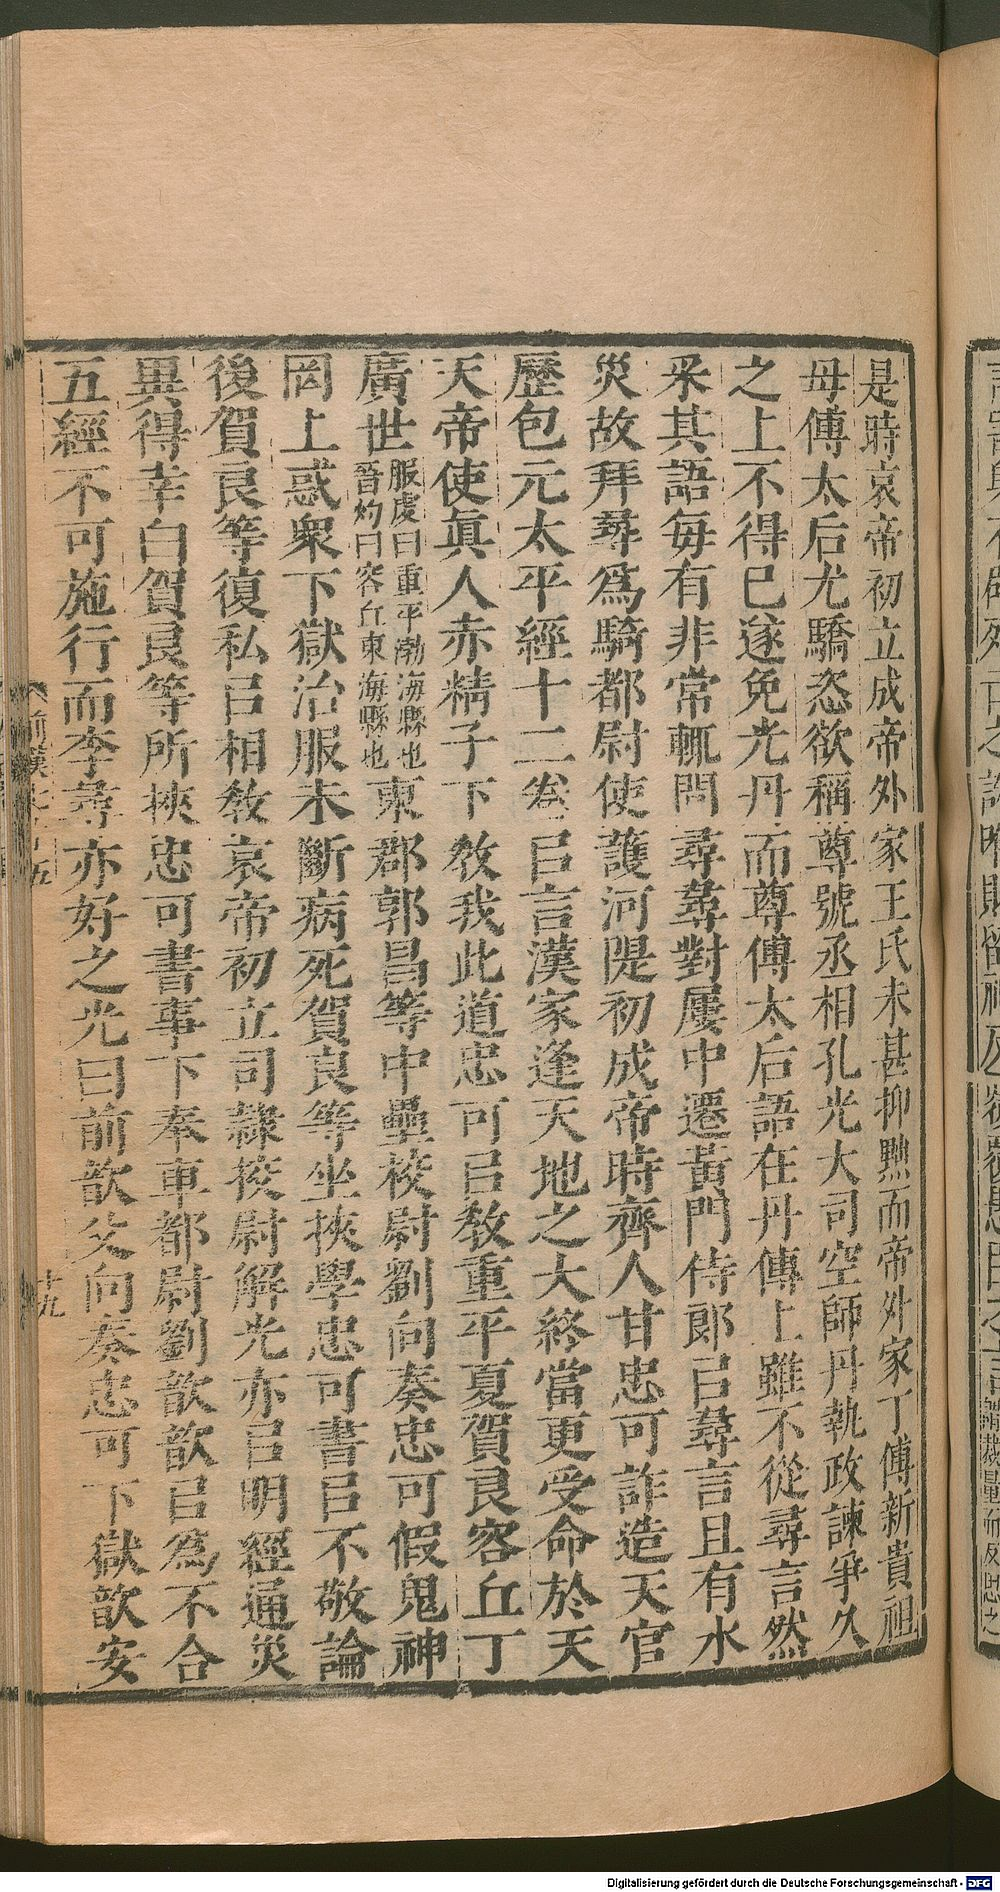 是時哀帝初立成帝外家王氏未甚抑黜而帝外家丁傅新貴祖
母傅太后尤驕恣欲稱尊號丞相孔光大司空師丹執政諫爭久
之上不得已遂免光丹而尊傅太后語在丹傳上雖不從尋言然
采其語每有非常輒問尋尋對屢中遷黃門侍郎㠯尋言且有水
災故拜尋爲騎都尉使護河隄初成帝時齊人甘忠可詐造天官
歷包元太平經十二卷㠯言漢家逢天地之大終當更受命於天
天帝使眞人赤精子下教我此道忠可㠯教重平夏賀良容丘丁
廣世服虔曰重平渤海縣也晉灼曰容丘東海縣也東郡郭昌等中壘校尉劉向奏忠可假鬼神
罔上惑衆下獄治服未斷病死賀良等坐挾學忠可書㠯不敬論
後賀良等復私㠯相教哀帝初立司隸校尉解光亦㠯明經通災
異得幸白賀良等所挾忠可書事下奉車都尉劉歆歆㠯爲不合
五經不可施行而李尋亦好之光曰前歆父向奏忠可下獄歆安
前漢七十五
十九
Digitalisierung gefördert durch die Deutsche Forschungsgemeinschaft - DFG